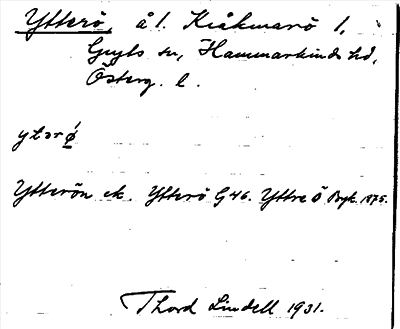 Ytterö, å l. Kråkmarö l,
Gryts sn, Hammarkinds hd,
Österg. l.
ytərǿ
Ytterön ek. Ytterö G 46. Yttre Ö 1875.
Thord Lindell 1931.